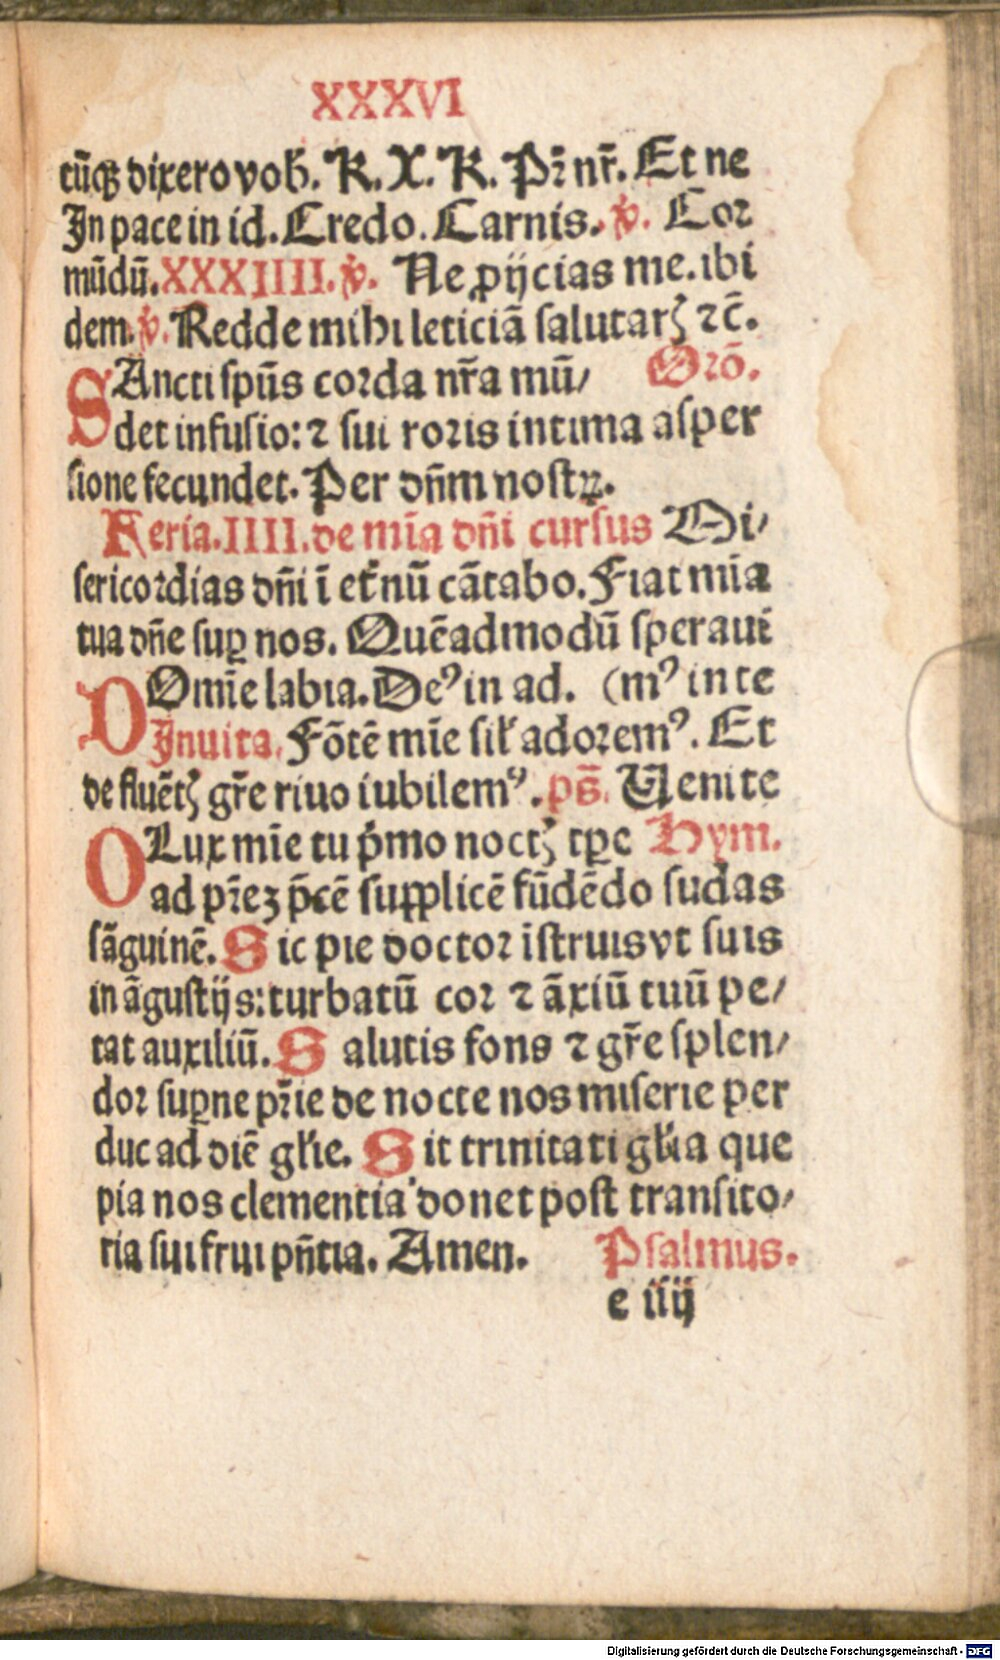 XXXVI
cūqꝫ dixero vob̄. K. X. K. Pr̄ nr̄. Et ne
In pace in id. Credo. Carnis. ꝟ. Cor
mūdū. XXXIIII. ꝟ. Ne ꝓijcias me. ibi
dem. ꝟ. Redde mihi leticiā salutarꝭ ⁊c̄.
SAncti spūs corda nr̄a mū/ Orō.
det infusio: ⁊ sui roris intima asper
sione fecundet. Per dn̄m nostrꝝ.
Feria. IIII. de mīa dn̄i cursus Mi/
sericordias dn̄i ī et̄nū cātabo. Fiat mīa
tua dn̄e suꝑ nos. Quēadmodū speraui
DOmīe labia. Deꝰ in ad. (mꝰ in te
Inuita. Fōtē mīe sil̄ adoremꝰ. Et
de fluētꝭ gr̄e riuo iubilemꝰ. ps̄. Uenite
O Lux mīe tu p̄mo noctꝭ tꝑe Hym.
ad pr̄eꝫ p̄cē supplicē fūdēdo sudas
sāguinē. Sic pie doctor īstruis vt suis
in āgustijs: turbatū cor ⁊ āxiū tuū pe/
tat auxiliū. Salutis fons ⁊ gr̄e splen/
dor suꝑne pr̄ie de nocte nos miserie per
duc ad diē gl̄ie. Sit trinitati gl̄ia que
pia nos clementia donet post transito/
ria sui frui pn̄tia. Amen. Psalmus.
e iiij
Digitalisierung gefördert durch die Deutsche Forschungsgemeinschaft - DFG